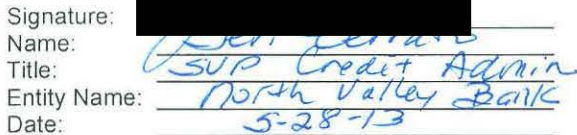 Signature:
Name:
Title: SVP Credit Admin
Entity Name: North Valley Bank
Date: 5-28-13